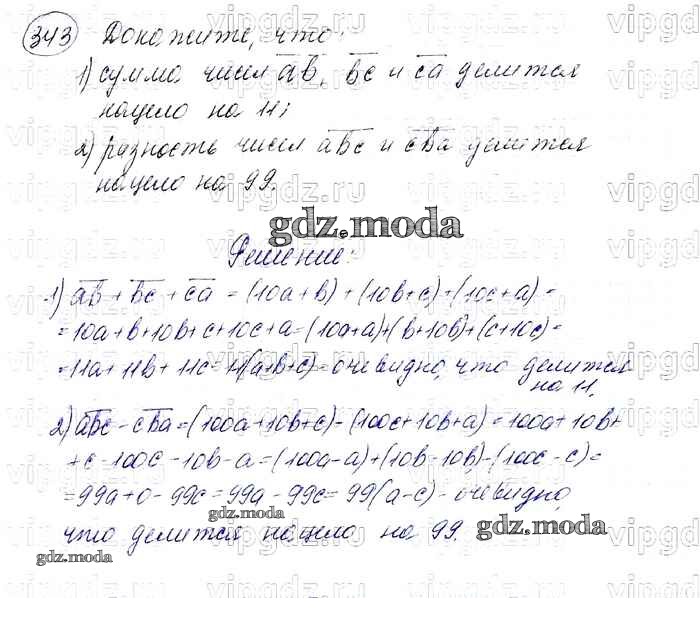 343 Докажите, что:
1) сумма чисел ab, bc и ca делится
нацело на 11;
2) разность чисел abc и cba делится
нацело на 99.
gdz.moda
Решение:
1) ab + bc + ca = (10a+b) + (10b+c) + (10c+a) =
= 10a+b+10b+c+10c+a = (10a+a)+(b+10b)+(c+10c) =
= 11a + 11b + 11c = 11(a+b+c) - очевидно, что делится
на 11.
2) abc - cba = (100a+10b+c) - (100c+10b+a) = 100a+10b+
+c-100c-10b-a = (100a-a)+(10b-10b)-(100c-c) =
= 99a+0-99c = 99a-99c = 99(a-c) - очевидно,
gdz.moda
что делится нацело на 99.
gdz.moda
gdz.moda